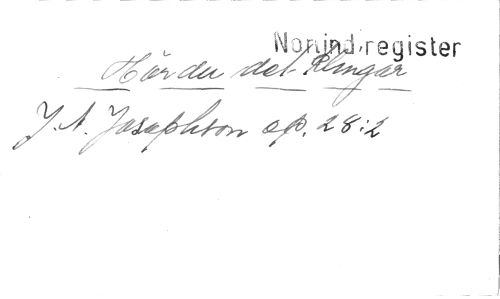 Nominalregister
Hör du det klingar
J. A. Josephson op. 28:2